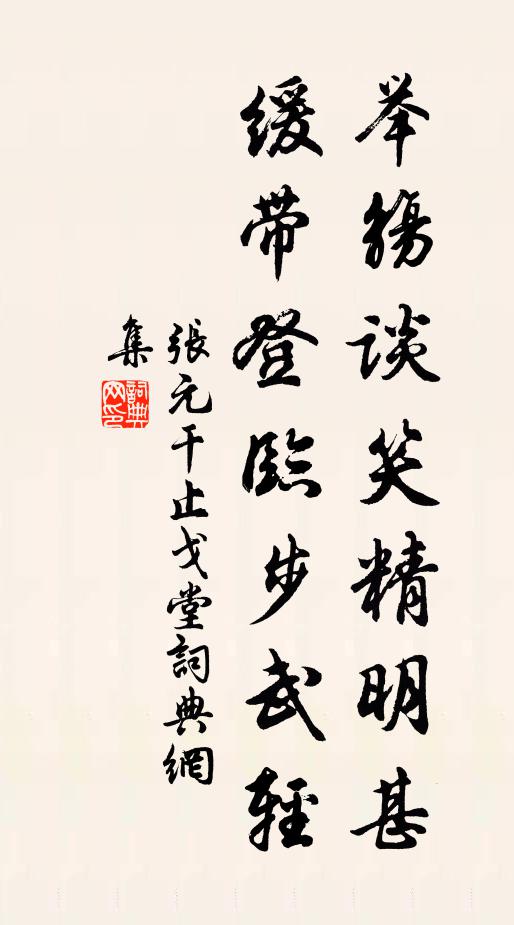 举觴谈笑精明甚
缓带登臨步武轻
張元干止戈堂詞典網
集
詞典網印